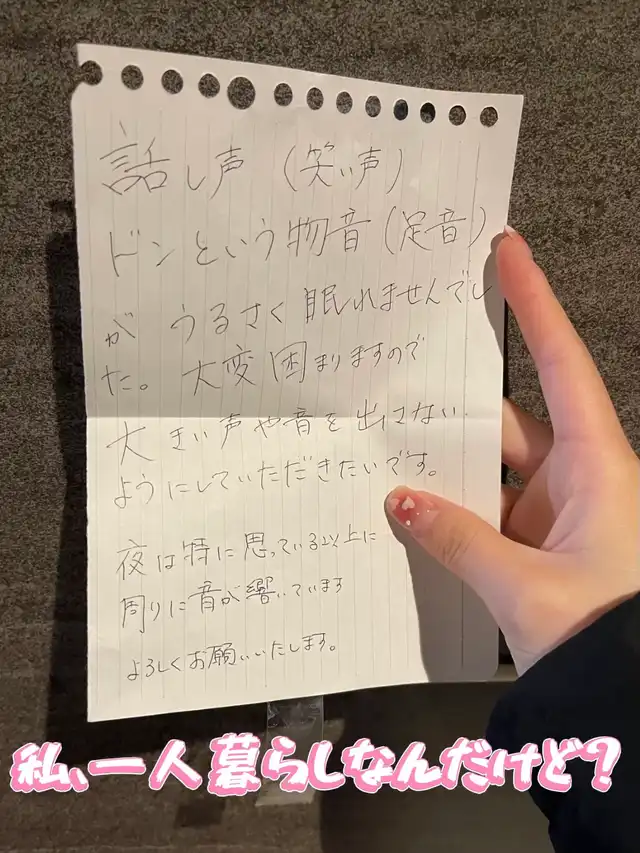 話し声（笑い声）
ドンという物音（足音）
がうるさく眠れませんでし
た。大変困りますので
大きい声や音を出さない
ようにしていただきたいです。
夜は特に思っている以上に
周りに音が響いています
よろしくお願いいたします。
私、一人暮らしなんだけど？